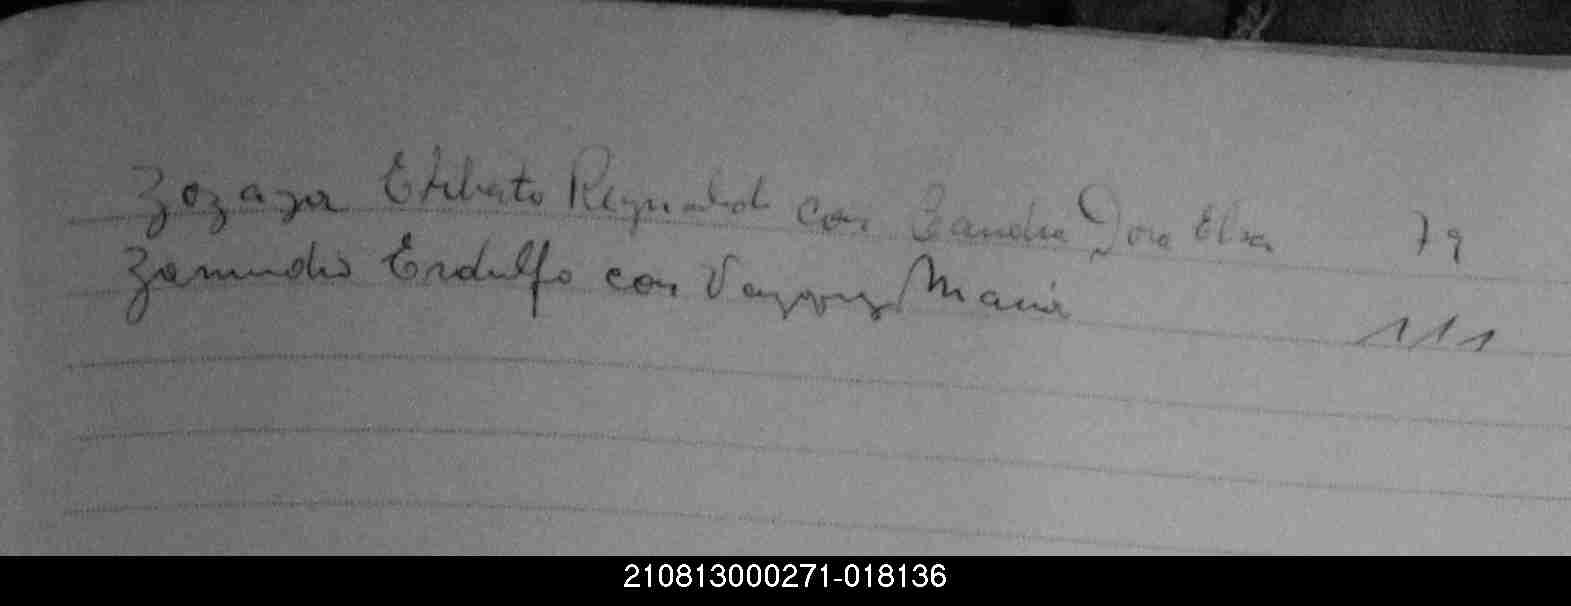 Zozaya Etilberto Reynaldo con Dora Elsa 79
Zamudio Erdulfo con Maria 111
210813000271-018136